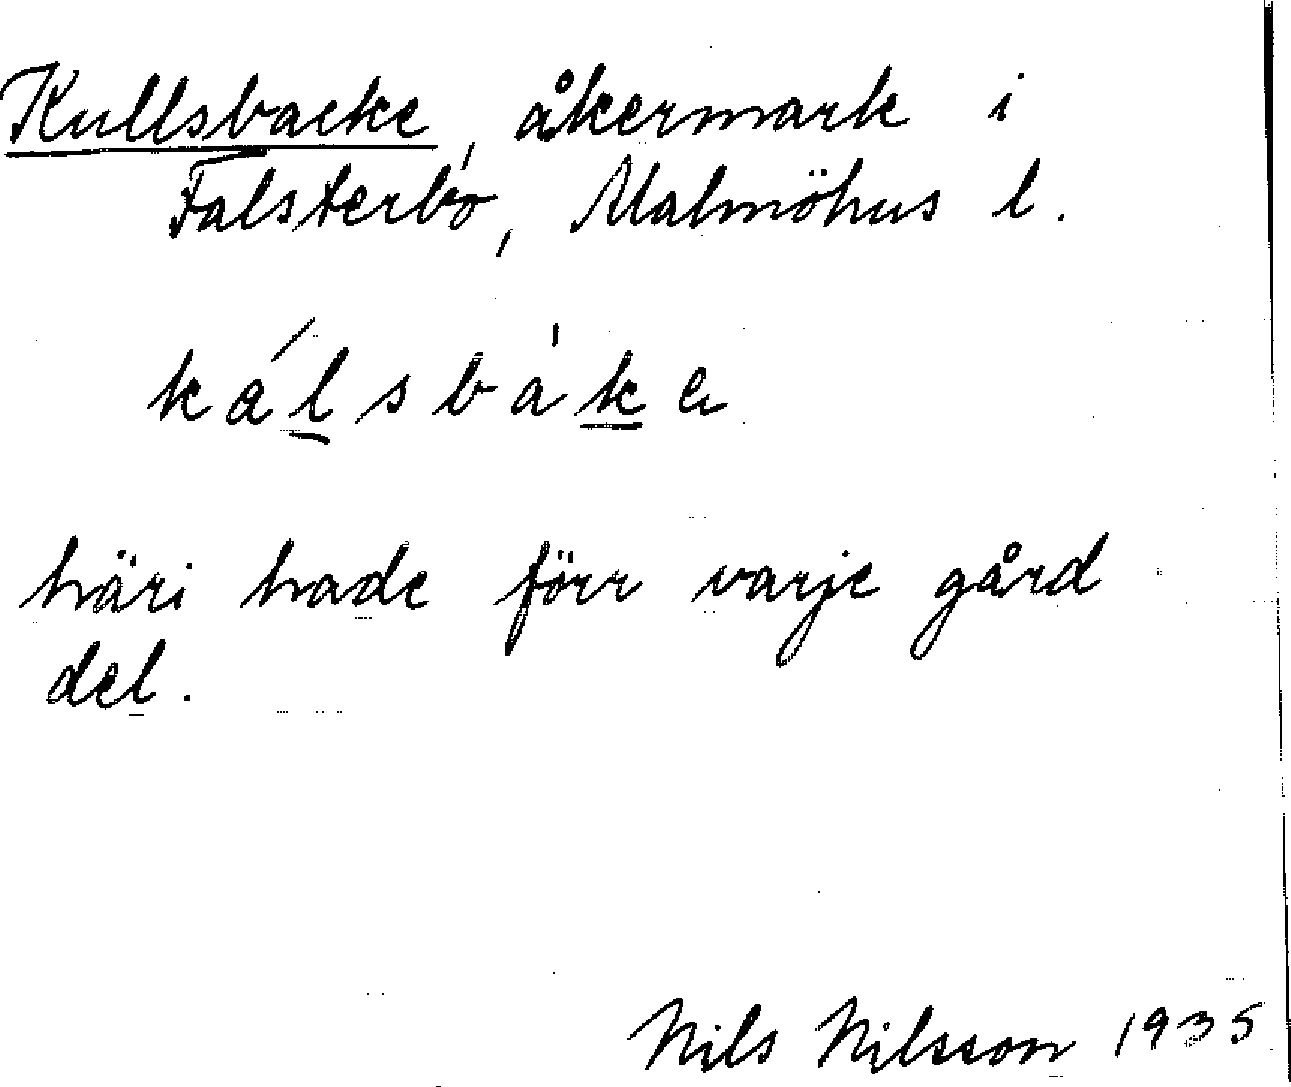 Kullsbacke, åkermark i
Falsterbo, Malmöhus l.
kálsbàke
häri hade förr varje gård
del.
Nils Nilsson 1935